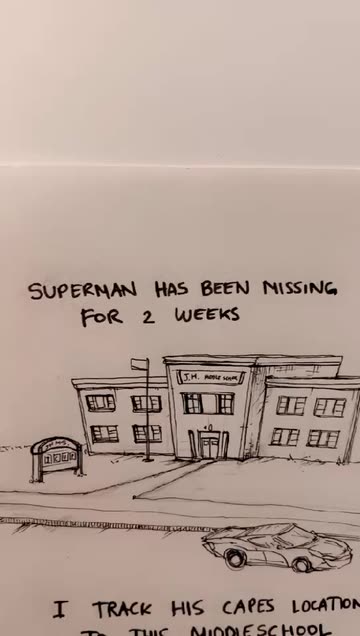 SUPERMAN HAS BEEN MISSING
FOR 2 WEEKS
J.H. MIDDLE SCHOOL
I TRACK HIS CAPES LOCATION
TO THIS MIDDLESCHOOL